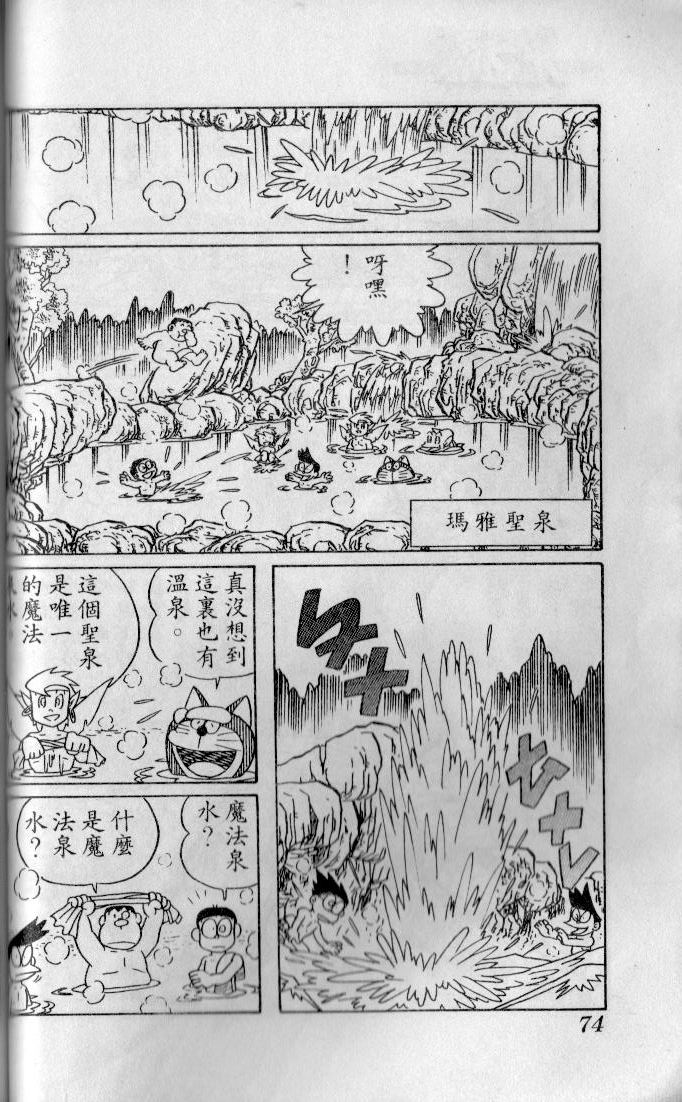 呀嘿
！
瑪雅聖泉
真沒想到
這裏也有
溫泉。
這個聖泉
是唯一
的魔法
魔法泉
水？
什麼
是魔
法泉
水？
74